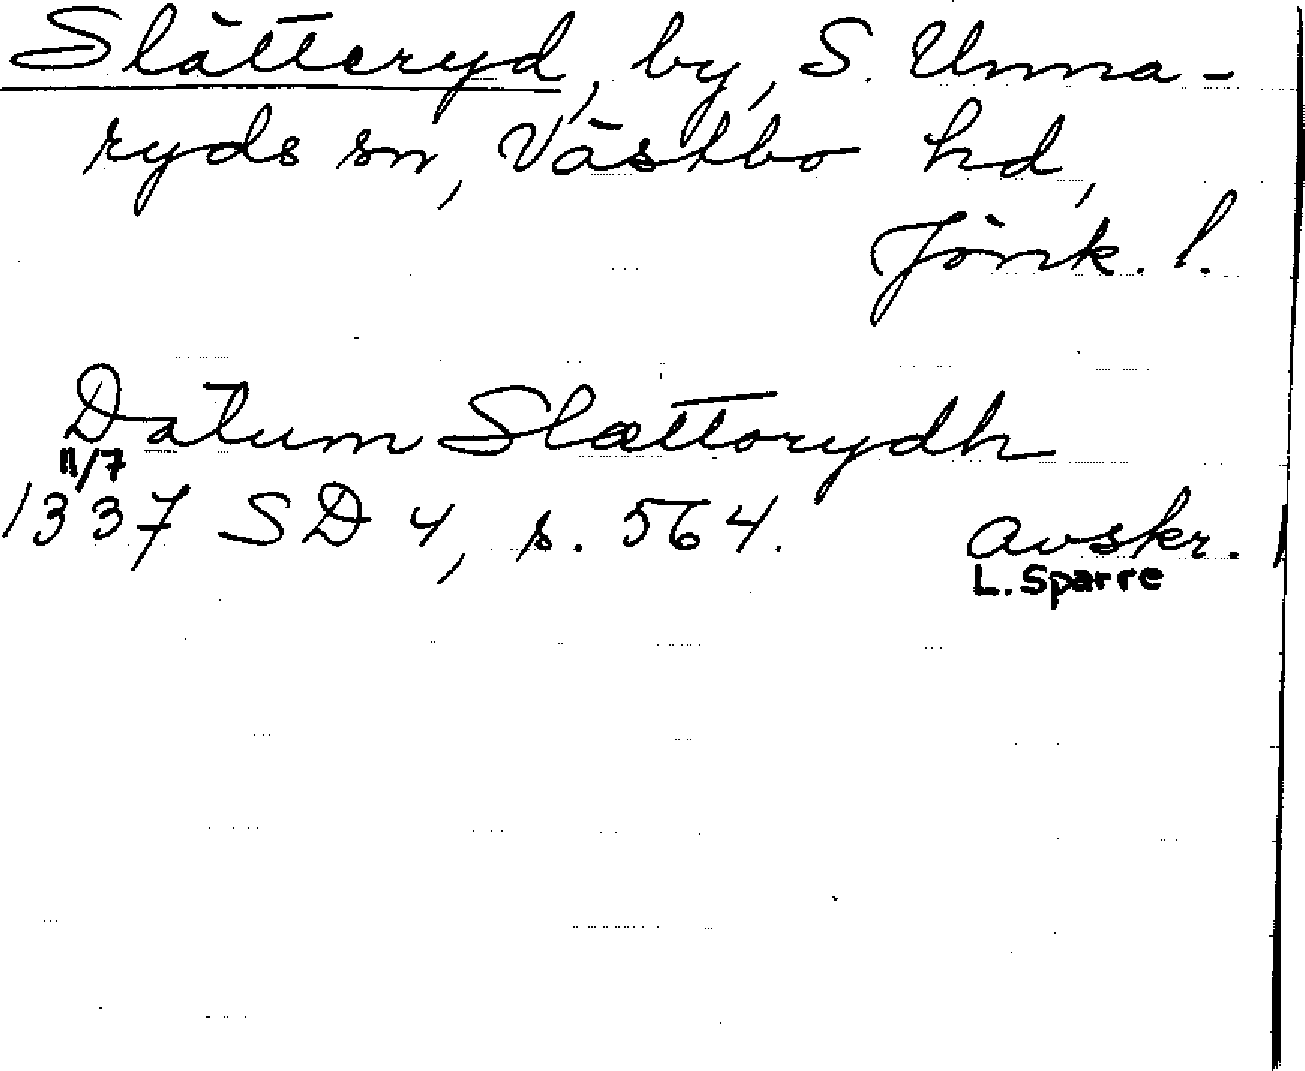 Slätteryd, by, S. Unna-
ryds sn, Västbo hd,
Jönk. l.
Datum Slættorydh
11/7
1337 SD 4, s. 564. avskr.
L. Sparre